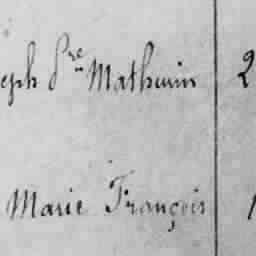 eph Pre Mathurin 2
Marie François 1